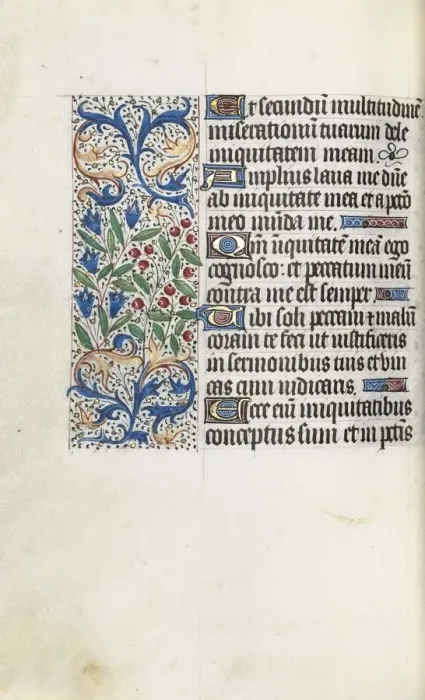 Et secundū multitudinē
miserationū tuarum dele
iniquitatem meam.
Amplius laua me dn̄e
ab iniquitate mea et a pctō
meo mūda me.
Qm̄ iniquitatē meā ego
cognosco: et peccatum meū
contra me est semper
Tibi soli peccaui & malū
coram te feci ut iustificeris
in sermonibus tuis et vin
cas cum iudicaris.
Ecce eni̅ iniquitatibus
conceptus sum et in pctīs